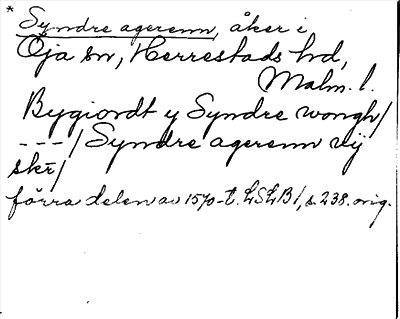 * Syndre agerenn, åker i
Öja sn, Herrestads hd,
Malm. l.
Bygiordt y Syndre wongh/
---/ Syndre agerenn vij
skr/
förra delen av 1570-t. LSLB1, s. 238. orig.